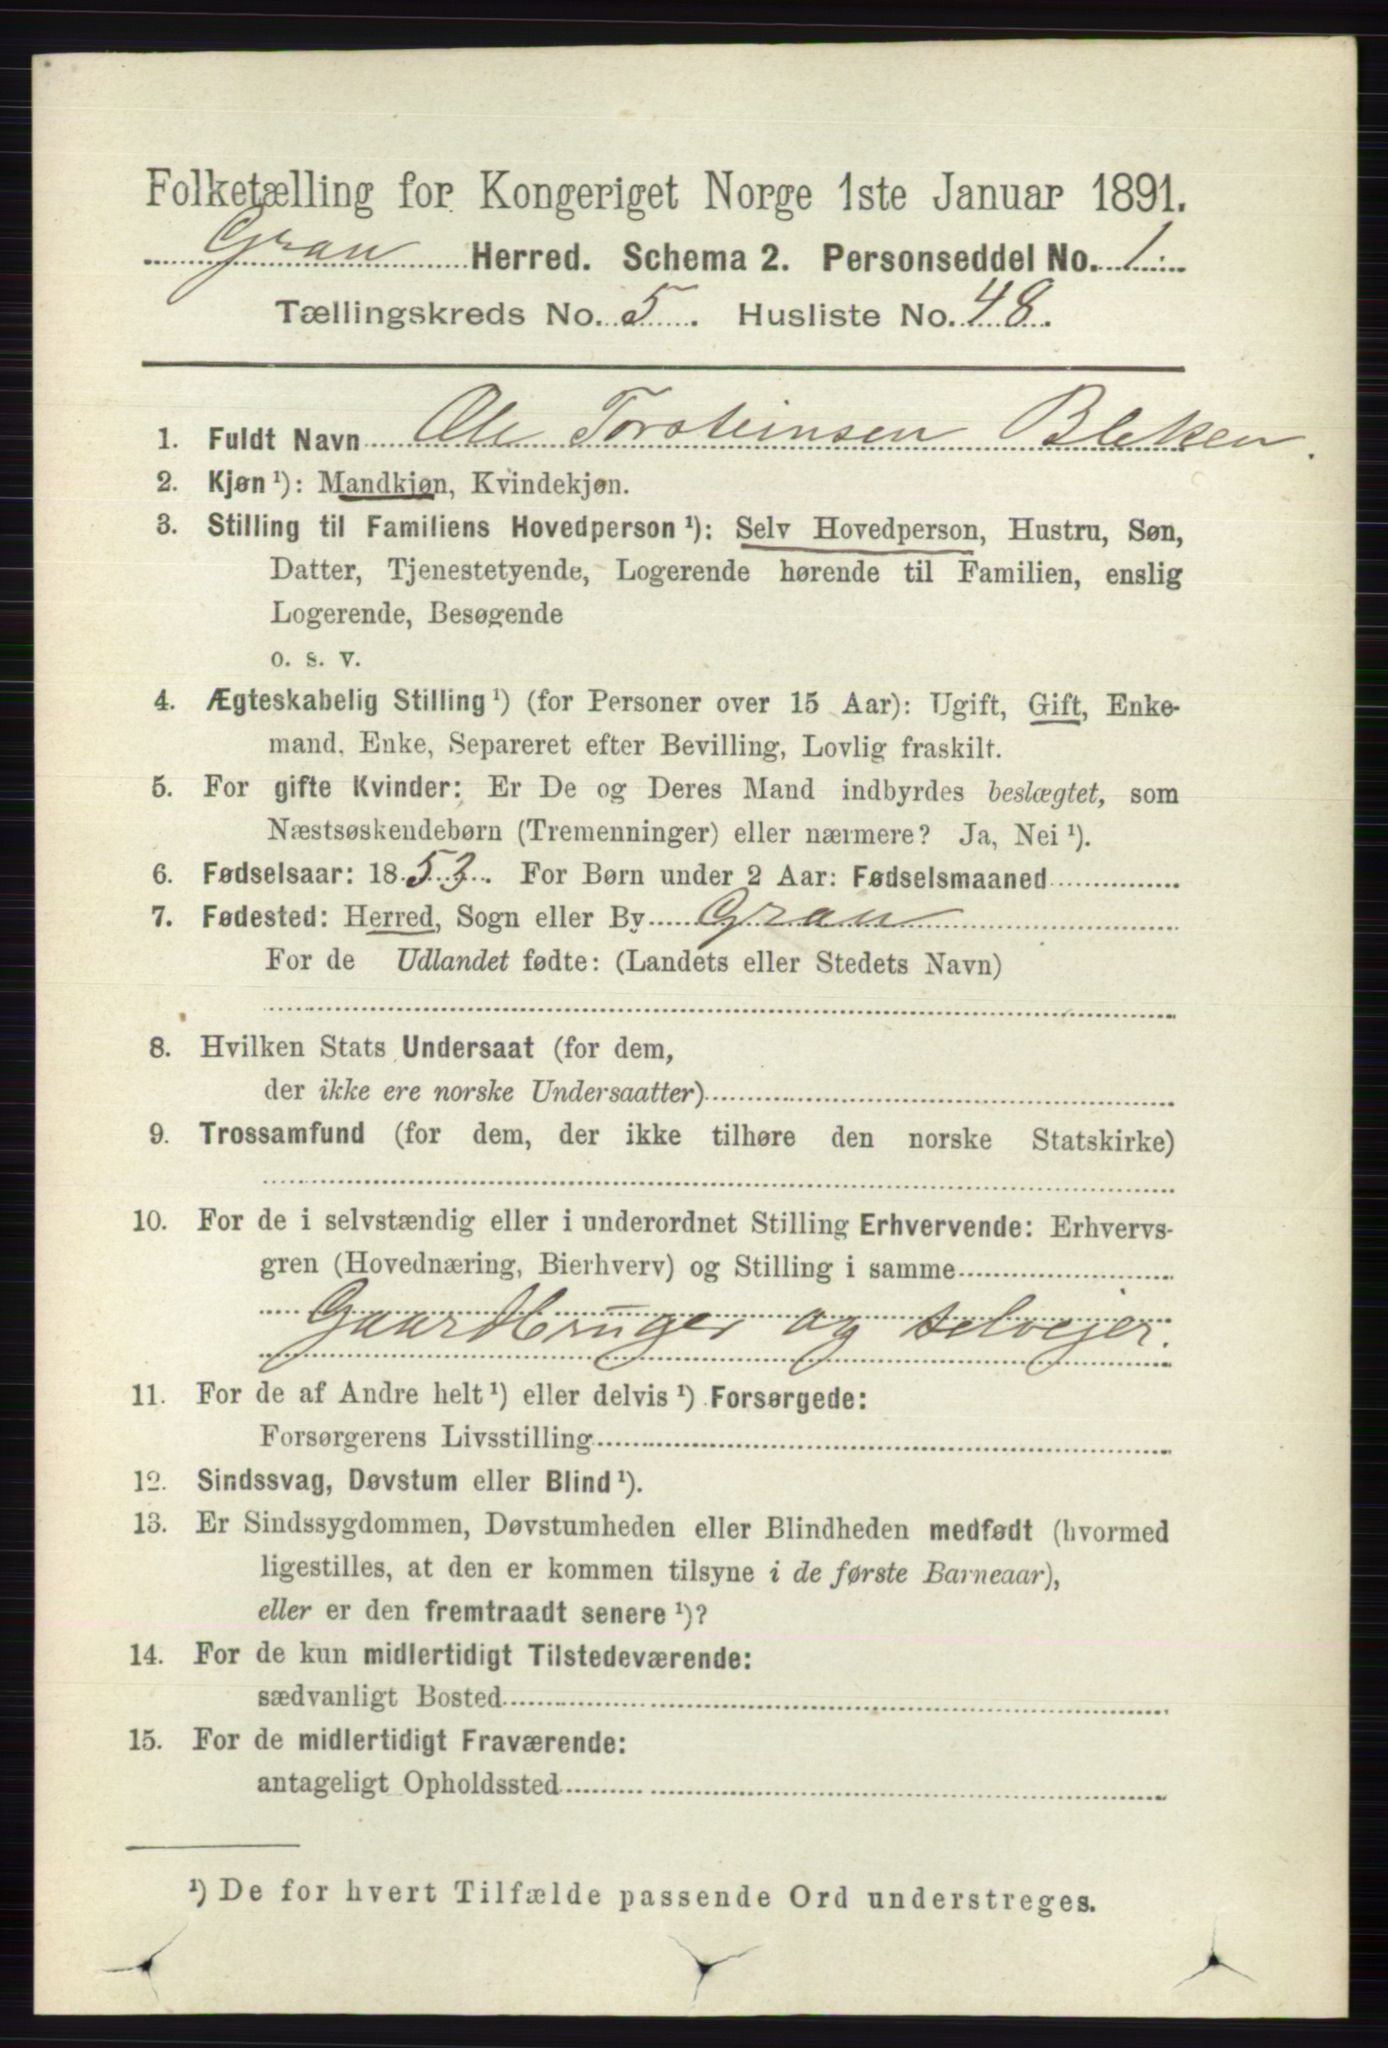 Folketælling for Kongeriget Norge 1ste Januar 1891.
Gran Herred. Schema 2. Personseddel No. 1.
Tællingskreds No. 5. Husliste No. 48.
1. Fuldt Navn Ole Torsteinsen Bleken.
2. Kjøn ¹): Mandkjøn, Kvindekjøn.
3. Stilling til Familiens Hovedperson ¹): Selv Hovedperson, Hustru, Søn,
Datter, Tjenestetyende, Logerende hørende til Familien, enslig
Logerende, Besøgende
o. s. v.
4. Ægteskabelig Stilling ¹) (for Personer over 15 Aar): Ugift, Gift, Enke-
mand, Enke, Separeret efter Bevilling, Lovlig fraskilt.
5. For gifte Kvinder: Er De og Deres Mand indbyrdes beslægtet, som
Næstsøskendebørn (Tremenninger) eller nærmere? Ja, Nei ¹).
6. Fødselsaar: 1853. For Børn under 2 Aar: Fødselsmaaned
7. Fødested: Herred, Sogn eller By Gran
For de Udlandet fødte: (Landets eller Stedets Navn)
8. Hvilken Stats Undersaat (for dem,
der ikke ere norske Undersaatter)
9. Trossamfund (for dem, der ikke tilhøre den norske Statskirke)
10. For de i selvstændig eller i underordnet Stilling Erhvervende: Erhvervs-
gren (Hovednæring, Bierhverv) og Stilling i samme
Gaardbruger og selvejer.
11. For de af Andre helt ¹) eller delvis ¹) Forsørgede:
Forsørgerens Livsstilling
12. Sindssvag, Døvstum eller Blind ¹).
13. Er Sindssygdommen, Døvstumheden eller Blindheden medfødt (hvormed
ligestilles, at den er kommen tilsyne i de første Barneaar),
eller er den fremtraadt senere ¹)?
14. For de kun midlertidigt Tilstedeværende:
sædvanligt Bosted
15. For de midlertidigt Fraværende:
antageligt Opholdssted
¹) De for hvert Tilfælde passende Ord understreges.